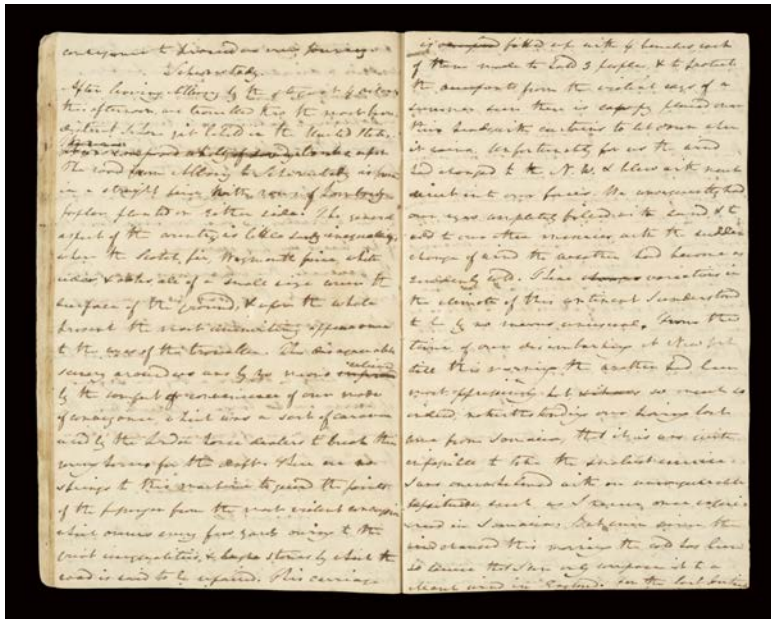 conveyance to proceed on our journey
Schenectady.
After leaving Albany by the
this afternoon, we travelled thro the most barren
district I have yet beheld in the United States,
upon
The road from Albany to Schenectady is
in a straight line with rows of Lombardy
poplars planted on either side. The general
aspect of the country is little inequality,
where the Scotch fir, Weymouth pine, white
cedar, & oaks, all of a small size cover the
surface of the ground, & upon the whole
present the most uninviting appearance
to the eyes of the traveller. The disagreeable
scenery around us was by no means relieved
by the comfort of our mode
of conveyance, which was a sort of caravan
used by the London horse dealers to break their
young horses for the There are no
springs to this machine to guard the joints
of the passengers from the most violent concussion
which occurs every few yards owing to the
great inequalities, & large stones by which the
road is said to be repaired. This carriage
is fitted up with 4 benches, each
of them made to hold 3 people, & to protect
the occupants from the violent rays of a
summer sun there is a canopy placed over
their heads with curtains to let down when
it rains. Unfortunately for us the wind
had changed to the N.W. & blew with much
directly in our faces. We consequently had
our eyes completely filled with the sand, & to
add to our other miseries with the sudden
change of wind the weather had become as
suddenly cold. These variations in
the climate of this continent I understood
to be by no means unusual. From the
time of our disembarking at New York
till this morning the weather had been
most oppressively hot so much so
indeed, notwithstanding our having lost
come from Jamaica, that it was quite
impossible to take the smallest exercise
I was overwhelmed with an unconquerable
lassitude such as I never once experi
enced in Jamaica. But ever since the
wind changed this morning the cold has been
so intense that I can only compare it to a
wind in England. For the last